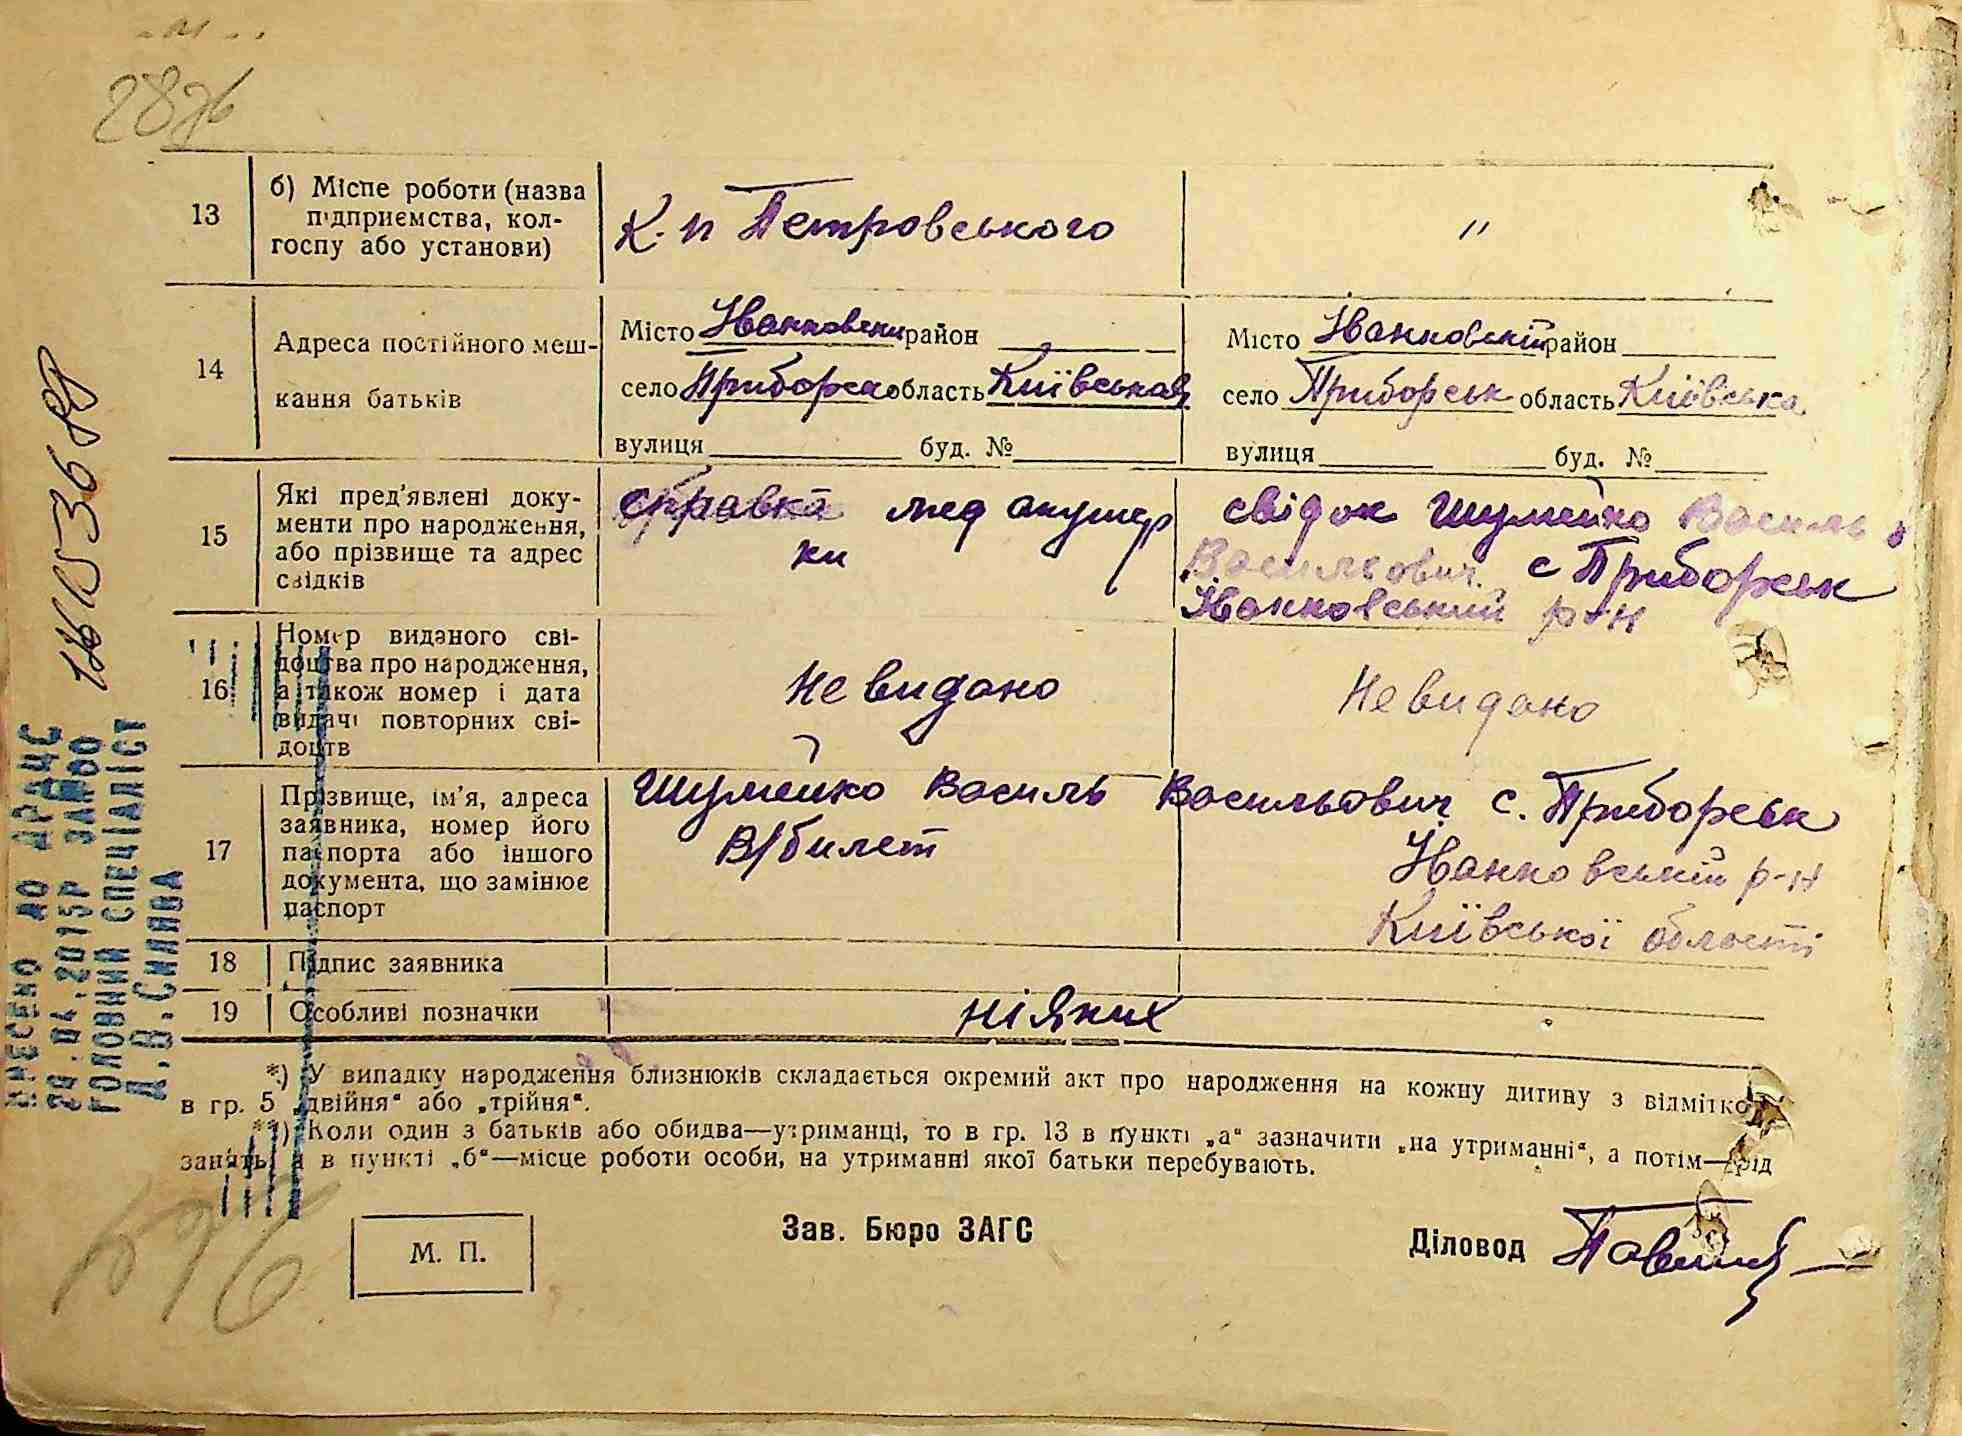 287б
13
б) Місце роботи (назва
підприємства, кол-
госпу або установи)
К. п Петровського
"
14
Адреса постійного меш-
кання батьків
Місто Іванковский район
село Приборск область Київська
вулиця буд. №
Місто Іванковській район
село Приборськ область Київська
вулиця буд. №
15
Які пред'явлені доку-
менти про народження,
або прізвище та адрес
свідків
справка мед акушер
ки
свідок Шумейко Василь
Васильович с Приборськ
Іванковський р-н
16
Номер виданого сві-
доцтва про народження,
а також номер і дата
видачі повторних сві-
доцтв
Не видано
Не видано
17
Прізвище, ім'я, адреса
заявника, номер його
паспорта або іншого
документа, що замінює
паспорт
Шумейко Василь Васильович с. Приборськ
В/билет
Іванковській р-н
Київської області
18
Підпис заявника
19
Особливі позначки
ніяких
*) У випадку народження близнюків складається окремий акт про народження на кожну дитину з відміткою
в гр. 5 „двійня“ або „трійня“.
**) Коли один з батьків або обидва—утриманці, то в гр. 13 в пункті „а“ зазначити „на утриманні“, а потім—рід
занять, а в пункті „б“—місце роботи особи, на утриманні якої батьки перебувають.
М. П.
Зав. Бюро ЗАГС
Діловод
ВНЕСЕНО ДО ДРАЦС
ГОЛОВНИЙ СПЕЦІАЛІСТ